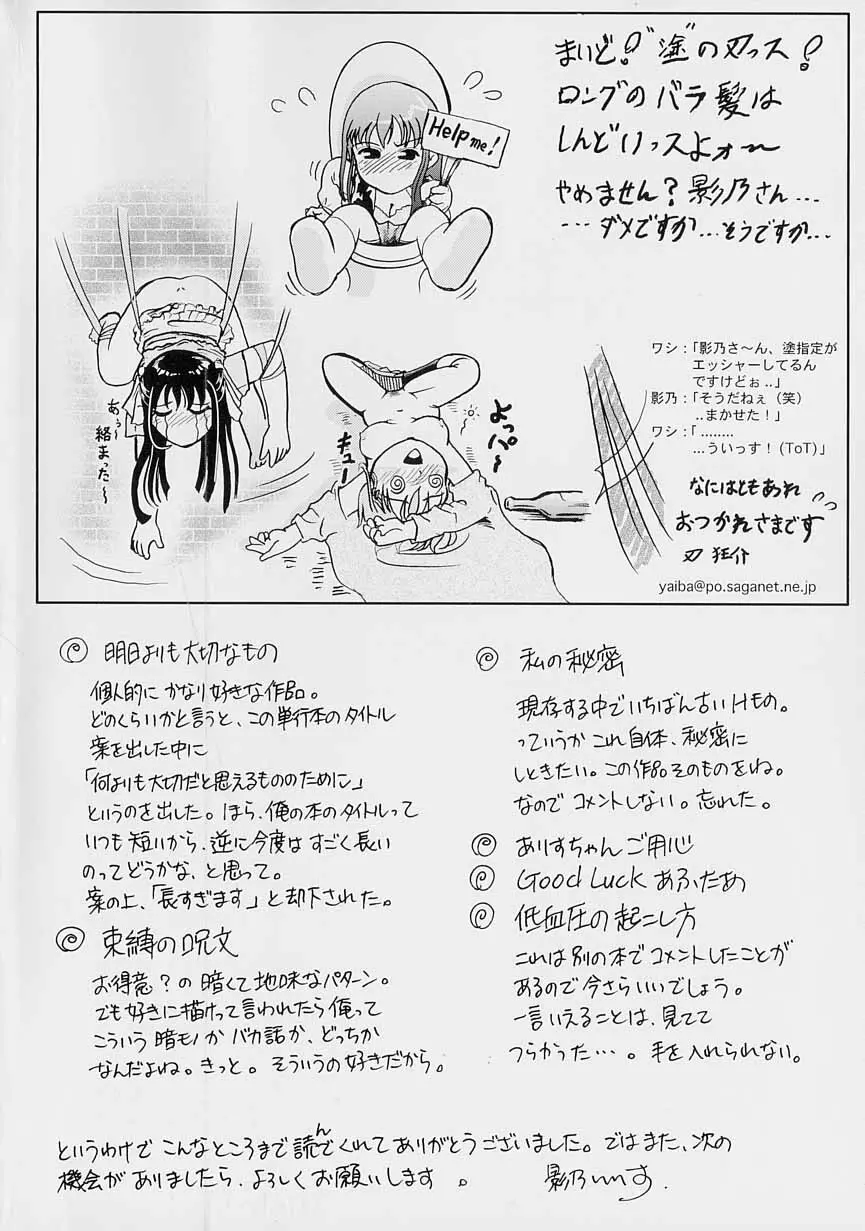 まいど!"塗"の刃っス!
ロングのバラ髪は
しんどいっスよォ〜
やめません?影乃さん……
…ダメですか…そうですか…
Help me!
あぅ〜
絡まった〜
キュー
よっパ〜
ワシ:「影乃さ〜ん、塗指定が
エッシャーしてるん
ですけどぉ‥」
影乃:「そうだねぇ(笑)
‥まかせた!」
ワシ:「‥‥‥‥
…ういっす!(ToT)」
なにはともあれ
おつかれさまです
刃 狂介
yaiba@po.saganet.ne.jp
明日よりも大切なもの
個人的にかなり好きな作品。
どのくらいかと言うと、この単行本のタイトル
案を出した中に
「何よりも大切だと思えるもののために」
というのを出した。ほら、俺の本のタイトルって
いつも短いから、逆に今度はすごく長い
のってどうかな、と思って。
案の上、「長すぎます」と却下された。
束縛の呪文
お得意?の暗くて地味なパターン。
でも好きに描けって言われたら俺って
こういう暗モノかバカ話か、どっちか
なんだよね。きっと。そういうの好きだから。
私の秘密
現存する中でいちばん古いHもの。
っていうかこれ自体、秘密に
しときたい。この作品そのものをね。
なのでコメントしない。忘れた。
ありすちゃんご用心
Good Luck あふたあ
低血圧の起こし方
これは別の本でコメントしたことが
あるので今さらいいでしょう。
一言いえることは、見てて
つらかった…。手を入れられない。
というわけでこんなところまで読んでくれてありがとうございました。ではまた、次の
機会がありましたら、よろしくお願いします。
影乃いりす.